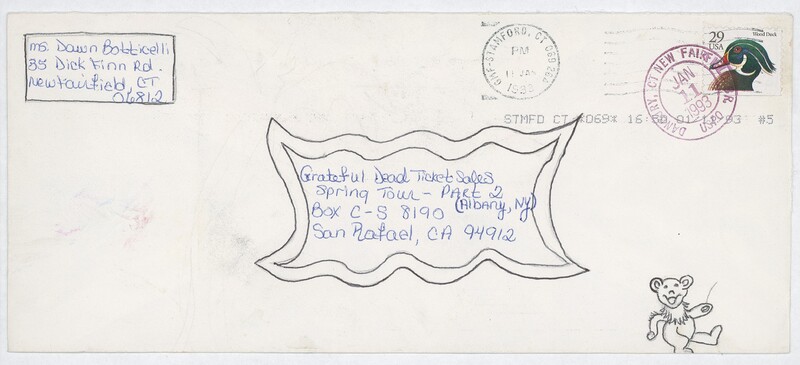 ms. Dawn Botticelli
85 Dick Finn Rd.
New Fairfield, CT
06812
GMF-STAMFORD, CT
PM
11 JAN
1993
29
USA
Wood Duck
DANBURY, CT NEW FAIRFIELD BR.
JAN
11
1993
USPO
STMFD CT *069* 16:50 01/11/93 #5
Grateful Dead Ticket Sales
Spring Tour - PART 2
(Albany, NY)
Box C-S 8190
San Rafael, CA 94912